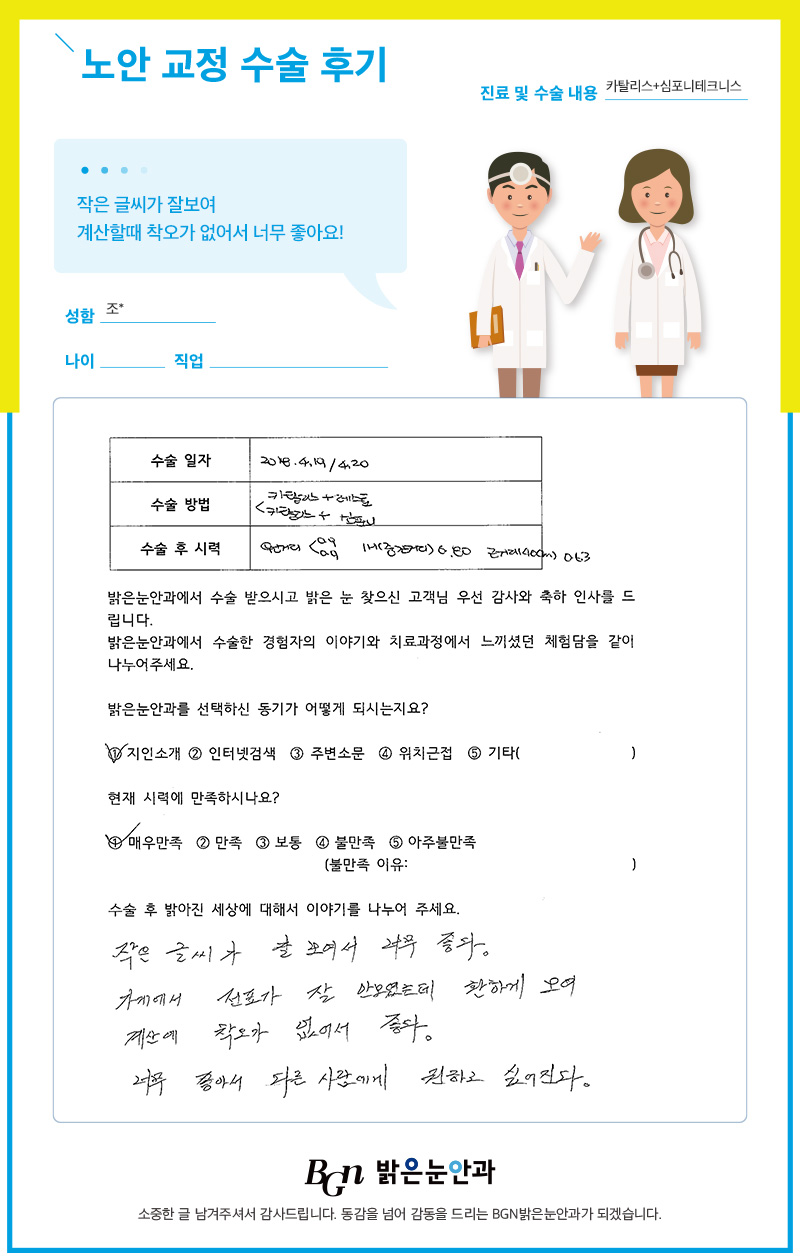 노안 교정 수술 후기
진료 및 수술 내용 카탈리스+심포니테크니스
작은 글씨가 잘보여
계산할때 착오가 없어서 너무 좋아요!
성함 조*
나이 직업
수술 일자 2018.4.19/4.20
수술 방법 카탈리스+레스토
카탈리스+심포니
수술 후 시력 원거리 0.9 0.9 1M(중간거리) 0.80 근거리(40cm) 0.63
밝은눈안과에서 수술 받으시고 밝은 눈 찾으신 고객님 우선 감사와 축하 인사를 드
립니다.
밝은눈안과에서 수술한 경험자의 이야기와 치료과정에서 느끼셨던 체험담을 같이
나누어주세요.
밝은눈안과를 선택하신 동기가 어떻게 되시는지요?
① 지인소개 ② 인터넷검색 ③ 주변소문 ④ 위치근접 ⑤ 기타( )
현재 시력에 만족하시나요?
① 매우만족 ② 만족 ③ 보통 ④ 불만족 ⑤ 아주불만족
(불만족 이유: )
수술 후 밝아진 세상에 대해서 이야기를 나누어 주세요.
작은 글씨가 잘 보여서 너무 좋다.
가게에서 전표가 잘 안보였는데 환하게 보여
계산에 착오가 없어서 좋다.
너무 좋아서 다른 사람에게 권하고 싶어진다.
BGN 밝은눈안과
소중한 글 남겨주셔서 감사드립니다. 동감을 넘어 감동을 드리는 BGN밝은눈안과가 되겠습니다.